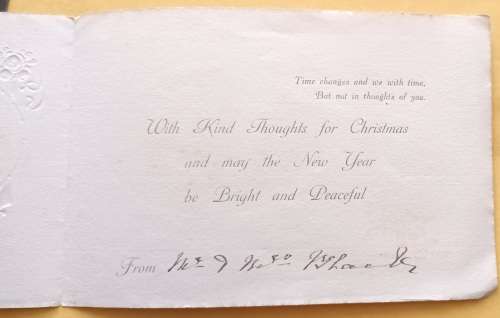 Time changes and we with time,
But not in thoughts of you.
With Kind Thoughts for Christmas
and may the New Year
be Bright and Peaceful
From Mr & Mrs